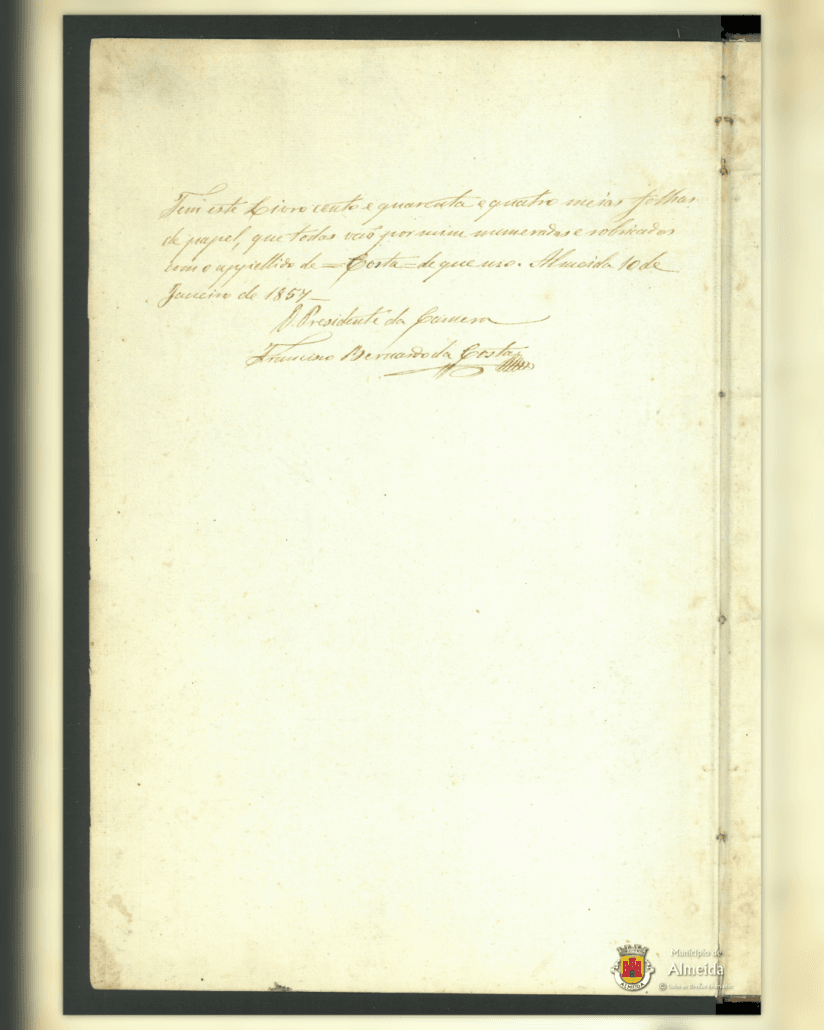 Tem este Livro cento e quarenta e quatro meias folhas
de papel, que todas vaõ por mim numeradas e rubricadas
com o appellido de = Costa = de que uso. Almeida 10 de
Janeiro de 1857
O Presidente da Camera
Francisco Bernardo da Costa
Município de
Almeida
ALMEIDA